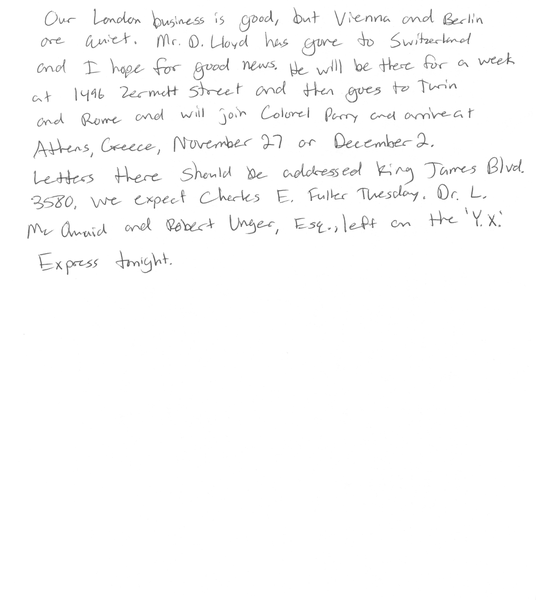 Our London business is good, but Vienna and Berlin
are quiet. Mr. D. Lloyd has gone to Switzerland
and I hope for good news. He will be there for a week
at 1496 Zermott Street and then goes to Turin
and Rome and will join Colonel Parry and arrive at
Athens, Greece, November 27 or December 2.
Letters there should be addressed King James Blvd.
3580. We expect Charles E. Fuller Tuesday. Dr. L.
Mc Quaid and Robert Unger, Esq., left on the 'Y.X.'
Express tonight.